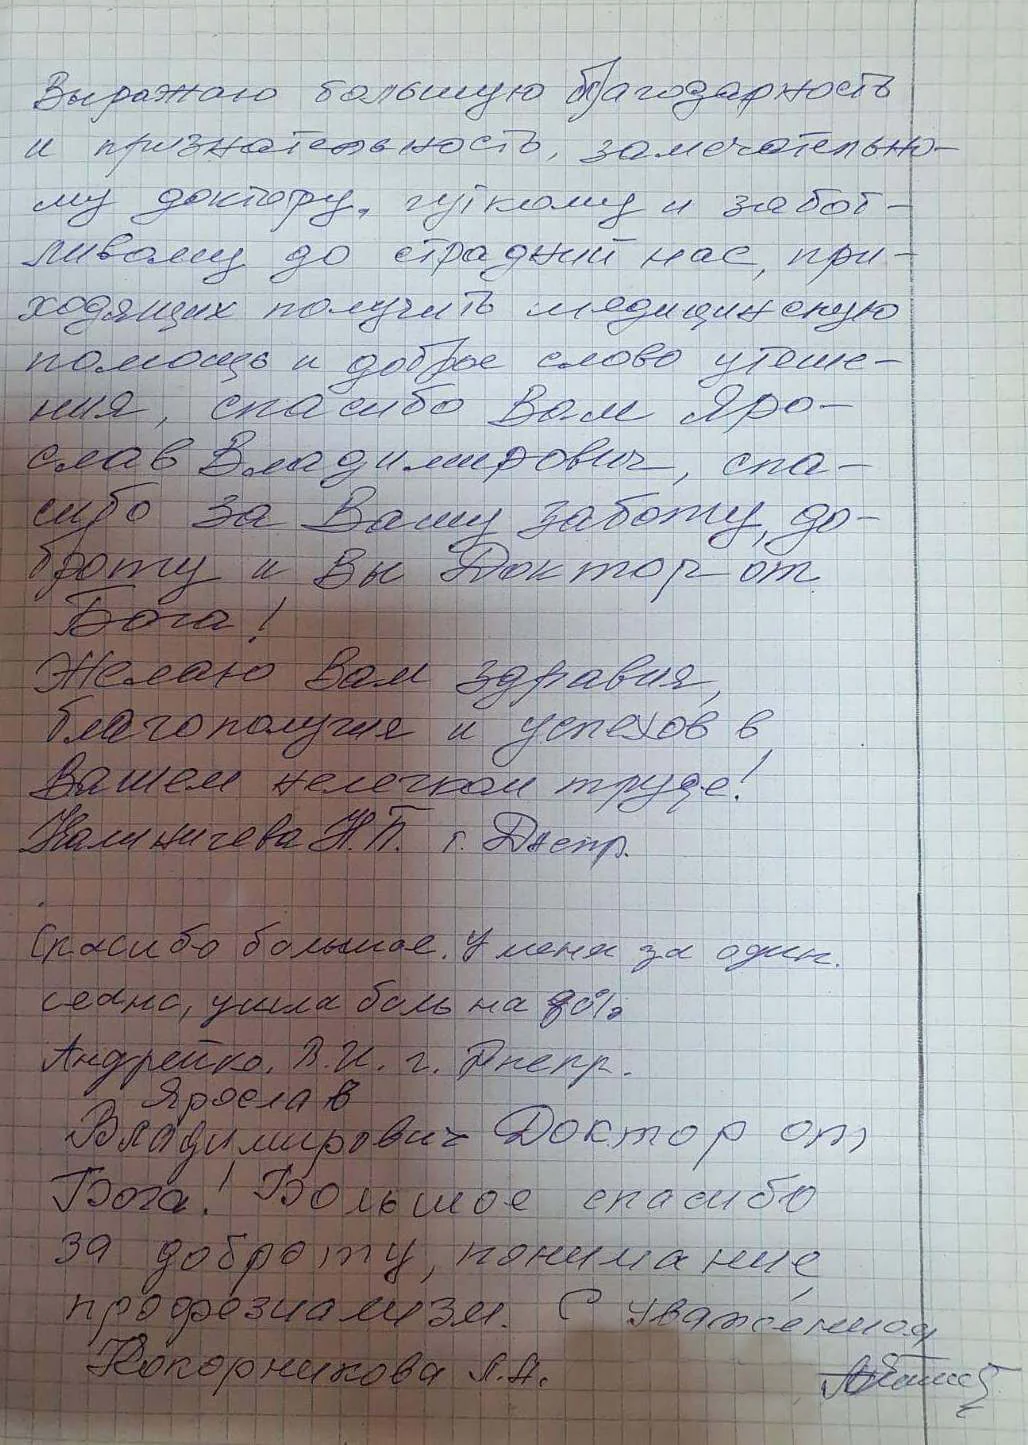 Выражаю большую благодарность
и признательность, замечательно-
му доктору, чуткому и забот-
ливому до страдний нас, при-
ходящих получить медицинскую
помощь и доброе слово утеше-
ния, спасибо Вам Яро-
слав Владимирович, спа-
сибо за Вашу заботу, до-
броту и Вы Доктор от
Бога!
Желаю Вам здравия,
благополучия и успехов в
Вашем нелегком труде!
Калиничева Н.П. г. Днепр.
Спасибо большое. У меня за один.
сеанс, ушла боль на 80%
Андрейко. В.И. г. Днепр.
Ярослав
Владимирович Доктор от
Бога! Большое спасибо
за доброту, понимание,
профезиализм. С уваженная
Кокорникова Л.А.